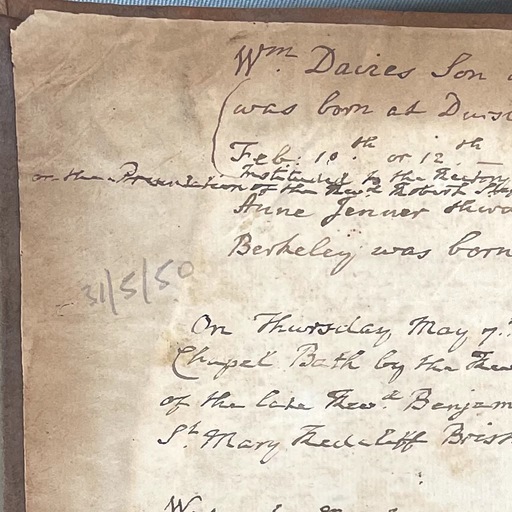 Wm Davies Son
was born at
Feb: 10th or 12th
Instituted to the
on the Presentation of the Revd Robert
Anne Jenner
Berkeley was born
31/5/50
On Thursday May 7th
Chapel Bath by the Rev
of the late Revd Benjam
St Mary Redcliff Brist